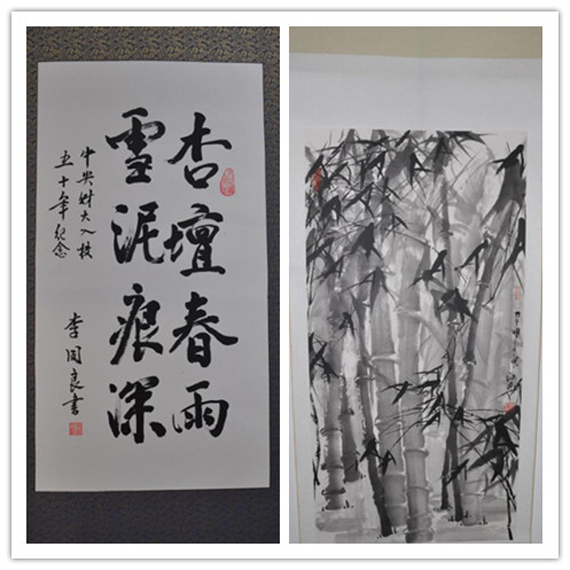 杏壇春雨
雪泥痕深
中央财大入校
五十年纪念
李同良書